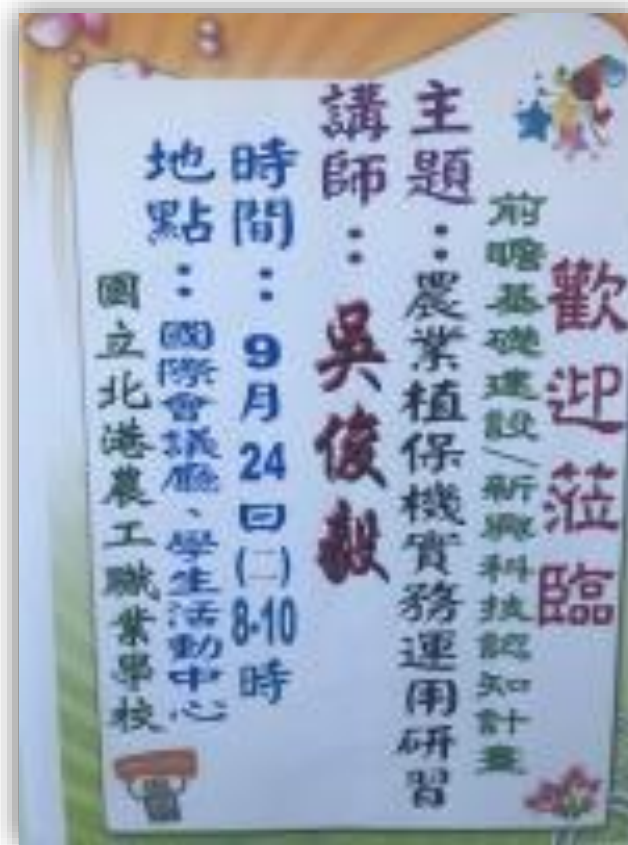 歡迎蒞臨
前瞻基礎建設/新興科技認知計畫
主題：農業植保機實務運用研習
講師：吳俊毅
時間：9月24日(二)8-10時
地點：國際會議廳、學生活動中心
國立北港農工職業學校